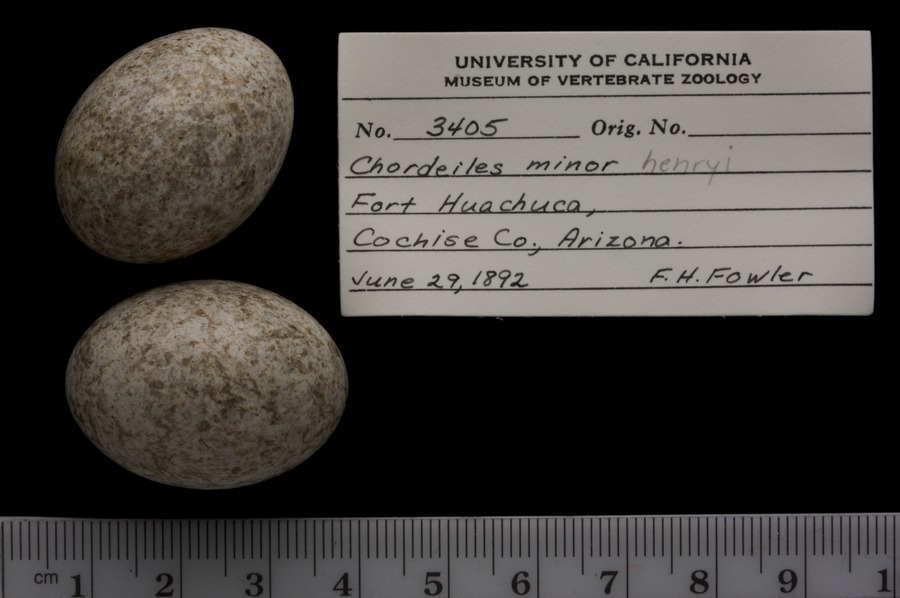 UNIVERSITY OF CALIFORNIA
MUSEUM OF VERTEBRATE ZOOLOGY
No. 3405 Orig. No.
Chordeiles minor henryi
Fort Huachuca,
Cochise Co., Arizona.
June 29, 1892 F.H. Fowler
cm 1 2 3 4 5 6 7 8 9 1